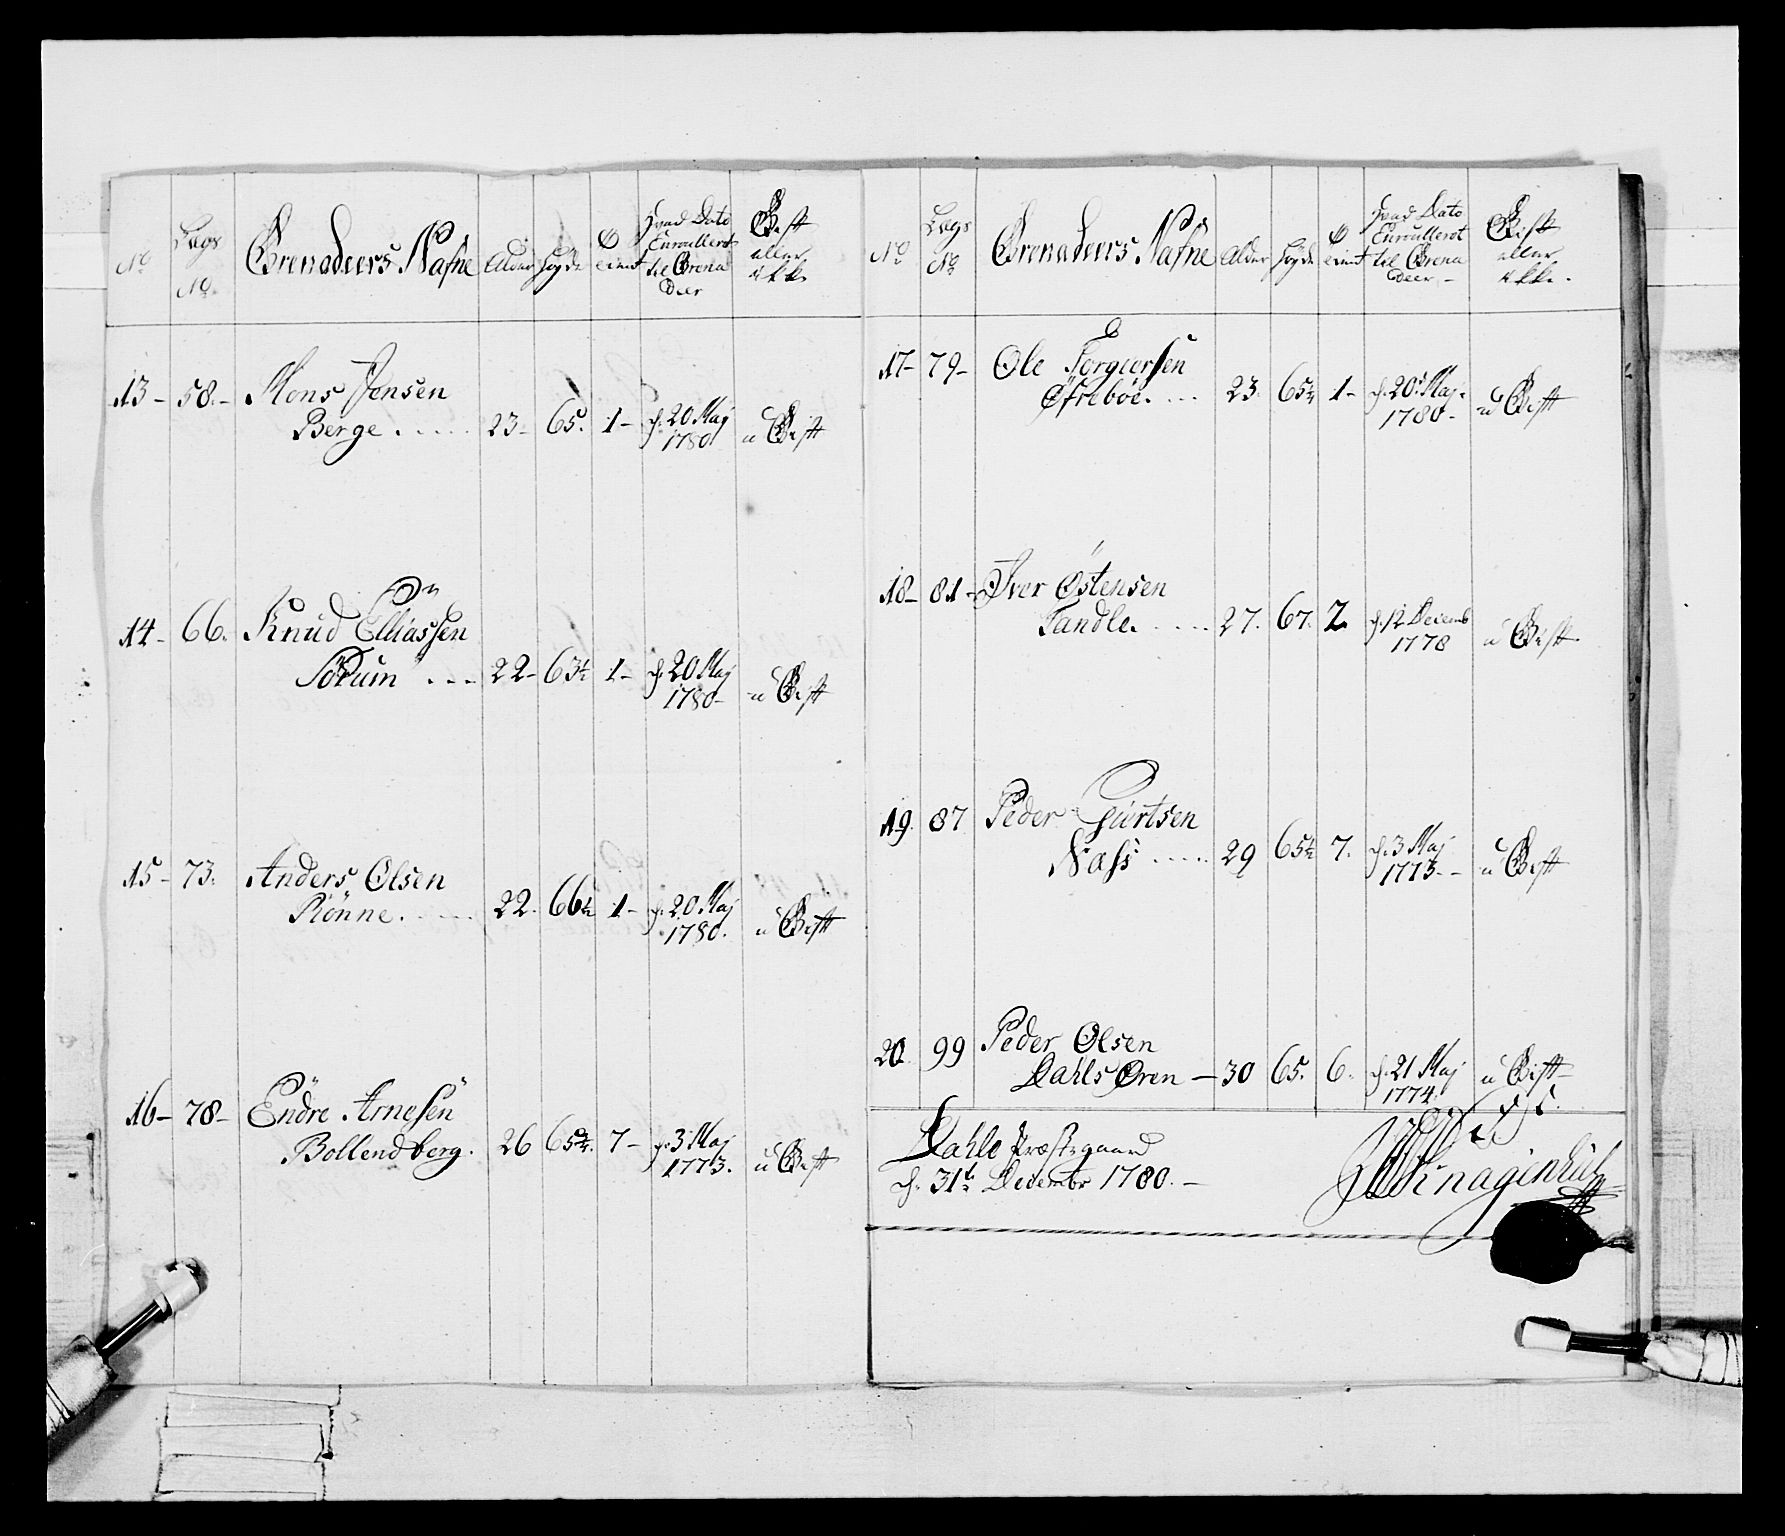 No
Lægs
No
Grenadeers Nafne
Alder
Høyde
tient
Hvad Dato
Enroulleret
til Grena
deer
Gift
eller
ikke
13 - 58. - Mons Jensen
Berge . . . . . 23 - 65. 1 - d. 20 Maj
1780 u Gift
14 - 66. Knud Elliassen
Sørum . . . 22 - 63½ 1 - d. 20 Maj
1780 - u Gift
15 - 73. Anders Olsen
Rönne . . . . 22. 66½ 1 - d. 20 Maj
1780. u Gift
16 - 78 - Endre Arnesen
Bollendberg. 26 65¾. 7 - d. 3 Maj
1773. u Gift
No
Lægs
No
Grenadeers Nafne
Alder
Høyde
tient
Hvad Dato
Enroulleret
til Grena
deer -
Gift
eller
ikke.
17 - 79 - Ole Torgiersen
Øfrebøe. . . . 23. 65¼ 1 - d. 20 Maj.
1780 - u Gift
18 - 81 - Iver Østensen
Tandle. . . . . 27. 67. 2. d. 12 Decemb
1778 u Gift
19. 87 Peder Giertsen
Næss . . . . . 29 65½ 7. d. 3 Maj
1773 - - u Gift
20. 99 Peder Olsen
Dahls Øren - 30 65. 6. d. 21 Maj
1774 u Gift
Dahle Præstegaard
d. 31te Decembr 1780. -